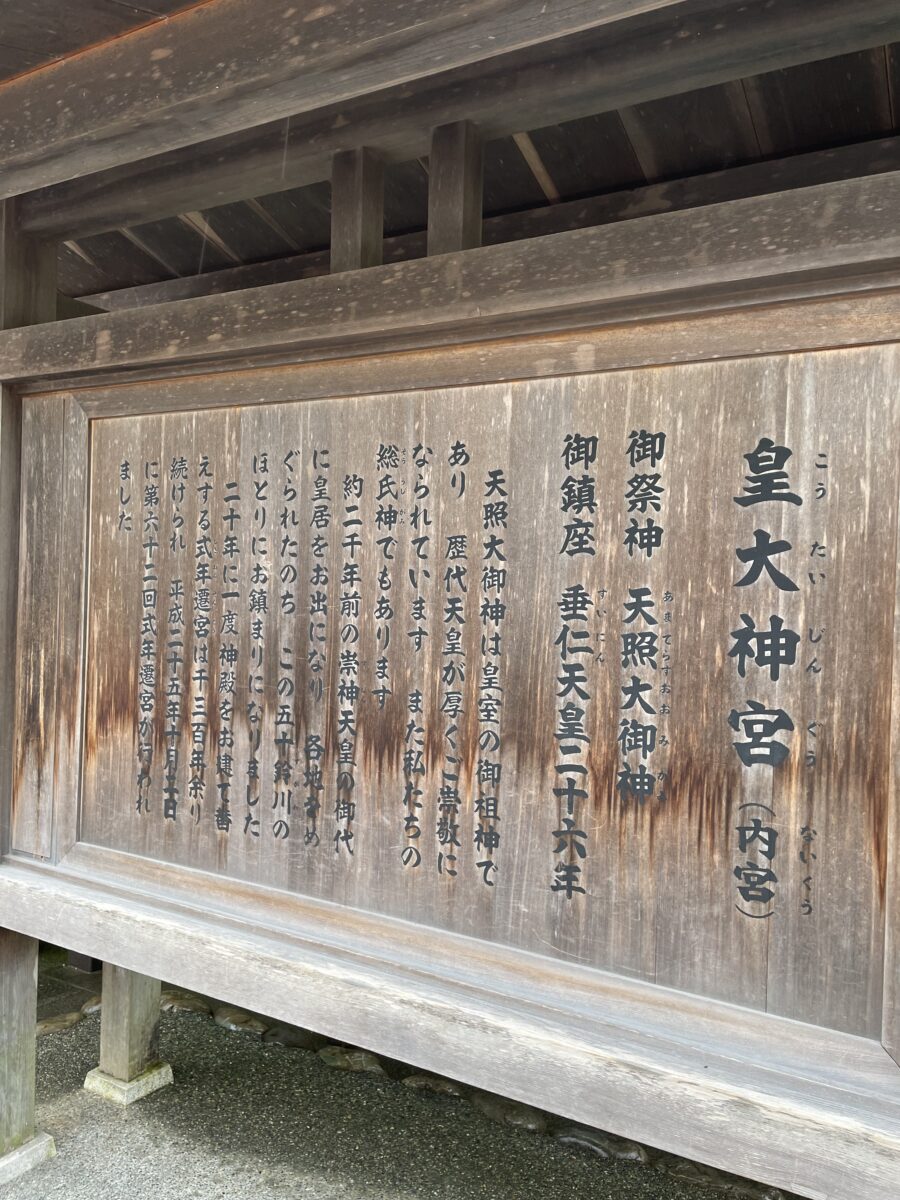 皇大神宮（内宮）
こうたいじんぐう ないくう
御祭神 天照大御神
あまてらすおおみかみ
御鎮座 垂仁天皇二十六年
すいにん
天照大御神は皇室の御祖神で
あり 歴代天皇が厚くご崇敬に
なられています また私たちの
総氏神でもあります
そううじがみ
約二千年前の崇神天皇の御代
に皇居をお出になり 各地をめ
ぐられたのち この五十鈴川の
ほとりにお鎮まりになりました
二十年に一度神殿をお建て替
えする式年遷宮は千三百年余り
続けられ 平成二十五年十月二日
に第六十二回式年遷宮が行われ
ました